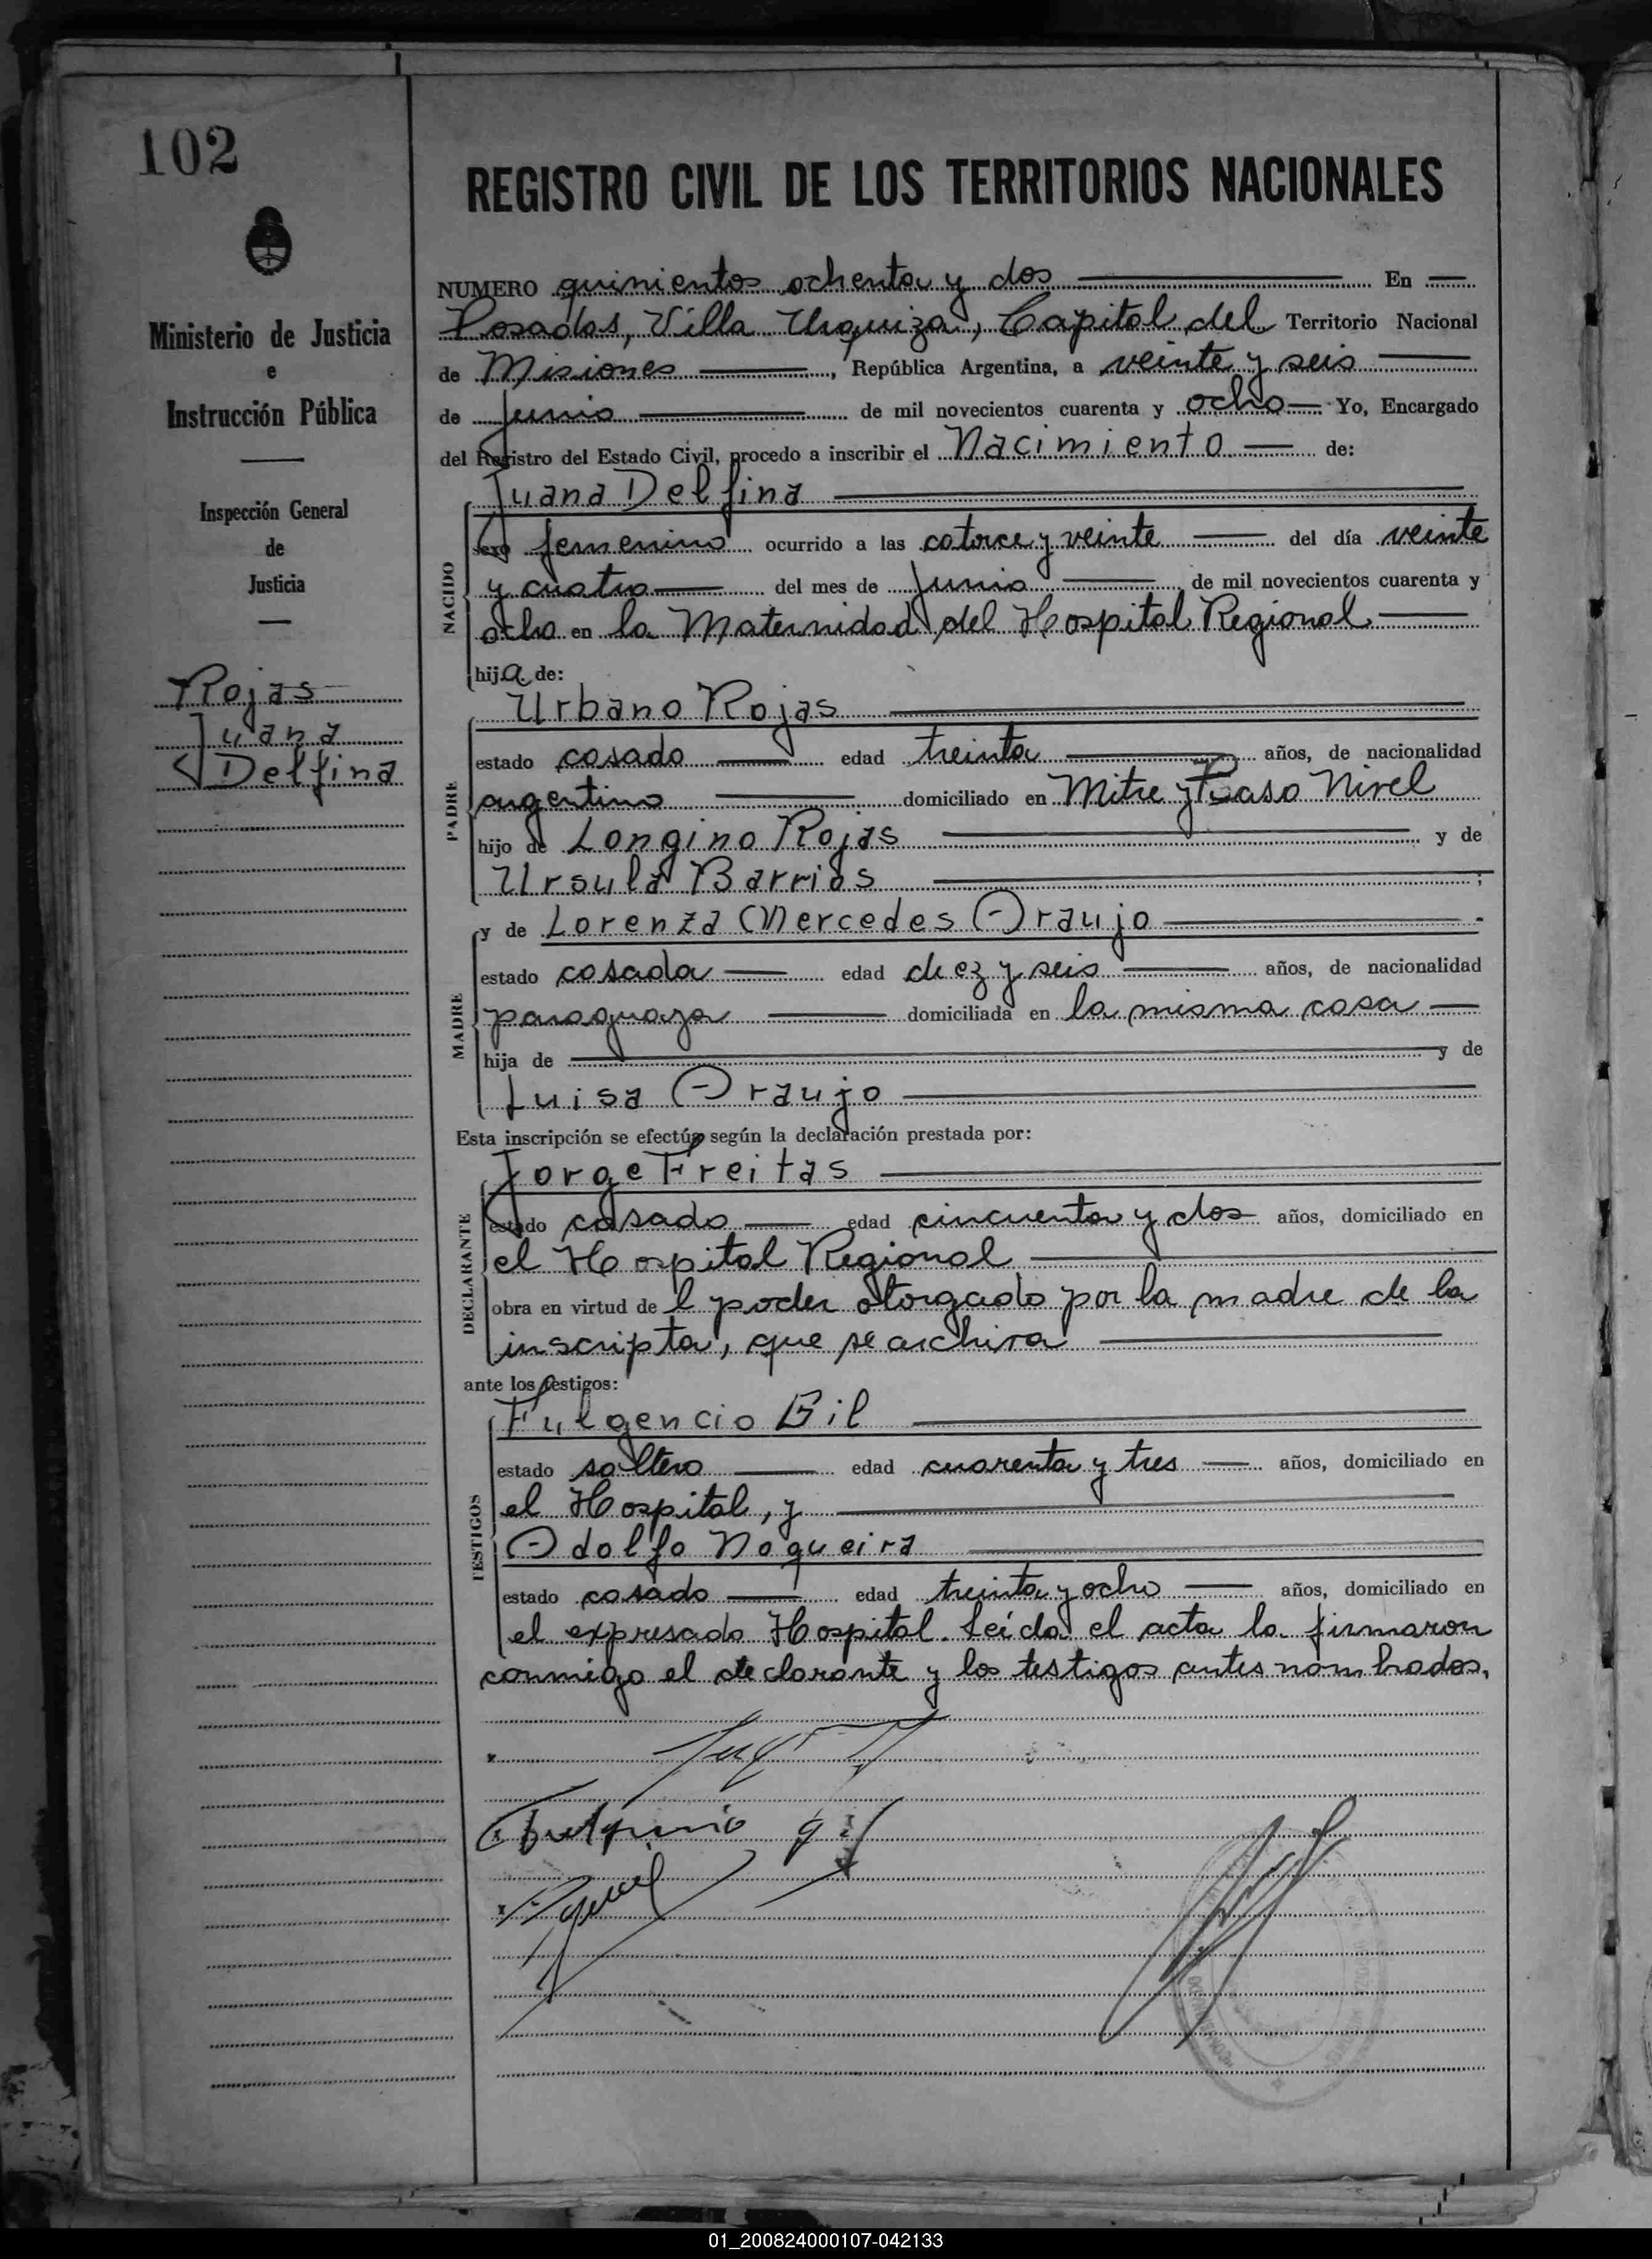 102
Ministerio de Justicia
e
Instrucción Pública
Inspección General
de
Justicia
Rojas
Juana
Delfina
REGISTRO CIVIL DE LOS TERRITORIOS NACIONALES
NUMERO quinientos ochenta y dos En
Posadas, Villa Urquiza, Capital del Territorio Nacional
de Misiones, República Argentina, a veinte y seis
de Junio de mil novecientos cuarenta y ocho Yo, Encargado
del Registro del Estado Civil, procedo a inscribir el Nacimiento de:
NACIDO
Juana Delfina
sexo femenino ocurrido a las catorce y veinte del día veinte
y cuatro del mes de Junio de mil novecientos cuarenta y
ocho en la Maternidad del Hospital Regional
hija de:
PADRE
Urbano Rojas
estado casado edad treinta años, de nacionalidad
argentino domiciliado en Mitre y Paso Nivel
hijo de Longino Rojas y de
Ursula Barrios ;
MADRE
y de Lorenza Mercedes Araujo
estado casada edad diez y seis años, de nacionalidad
paraguaya domiciliada en la misma casa
hija de y de
Luisa Araujo
Esta inscripción se efectúa según la declaración prestada por:
DECLARANTE
Jorge Freitas
estado casado edad cincuenta y dos años, domiciliado en
el Hospital Regional
obra en virtud del poder otorgado por la madre de la
inscripta, que se archiva
ante los testigos:
TESTIGOS
Fulgencio Gil
estado soltero edad cuarenta y tres años, domiciliado en
el Hospital, y
Adolfo Nogueira
estado casado edad treinta y ocho años, domiciliado en
el expresado Hospital. Leída el acta la firmaron
conmigo el declarante y los testigos antes nombrados.
01_200824000107-042133